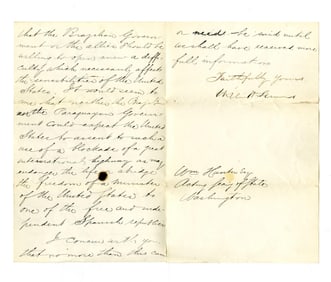 that the Brazilian Govern-
ment or the allies should be
willing to open now a diffi-
culty which necessarily affects
the sensibilities of the United
States. It would seem to
me that neither the Brazilian
or the Paraguayan Govern-
ment could expect the United
States to assent to such a
use of a blockade of a great
international highway as may
endanger the life or abridge
the freedom of a minister
of the United States to
one of the free and inde-
pendent Spanish republics.
I concur with you
that no more than this can
or need be said until
we shall have received more
full information.
Faithfully Yours
Wm Hunter Esq
Acting Secy of State
Washington